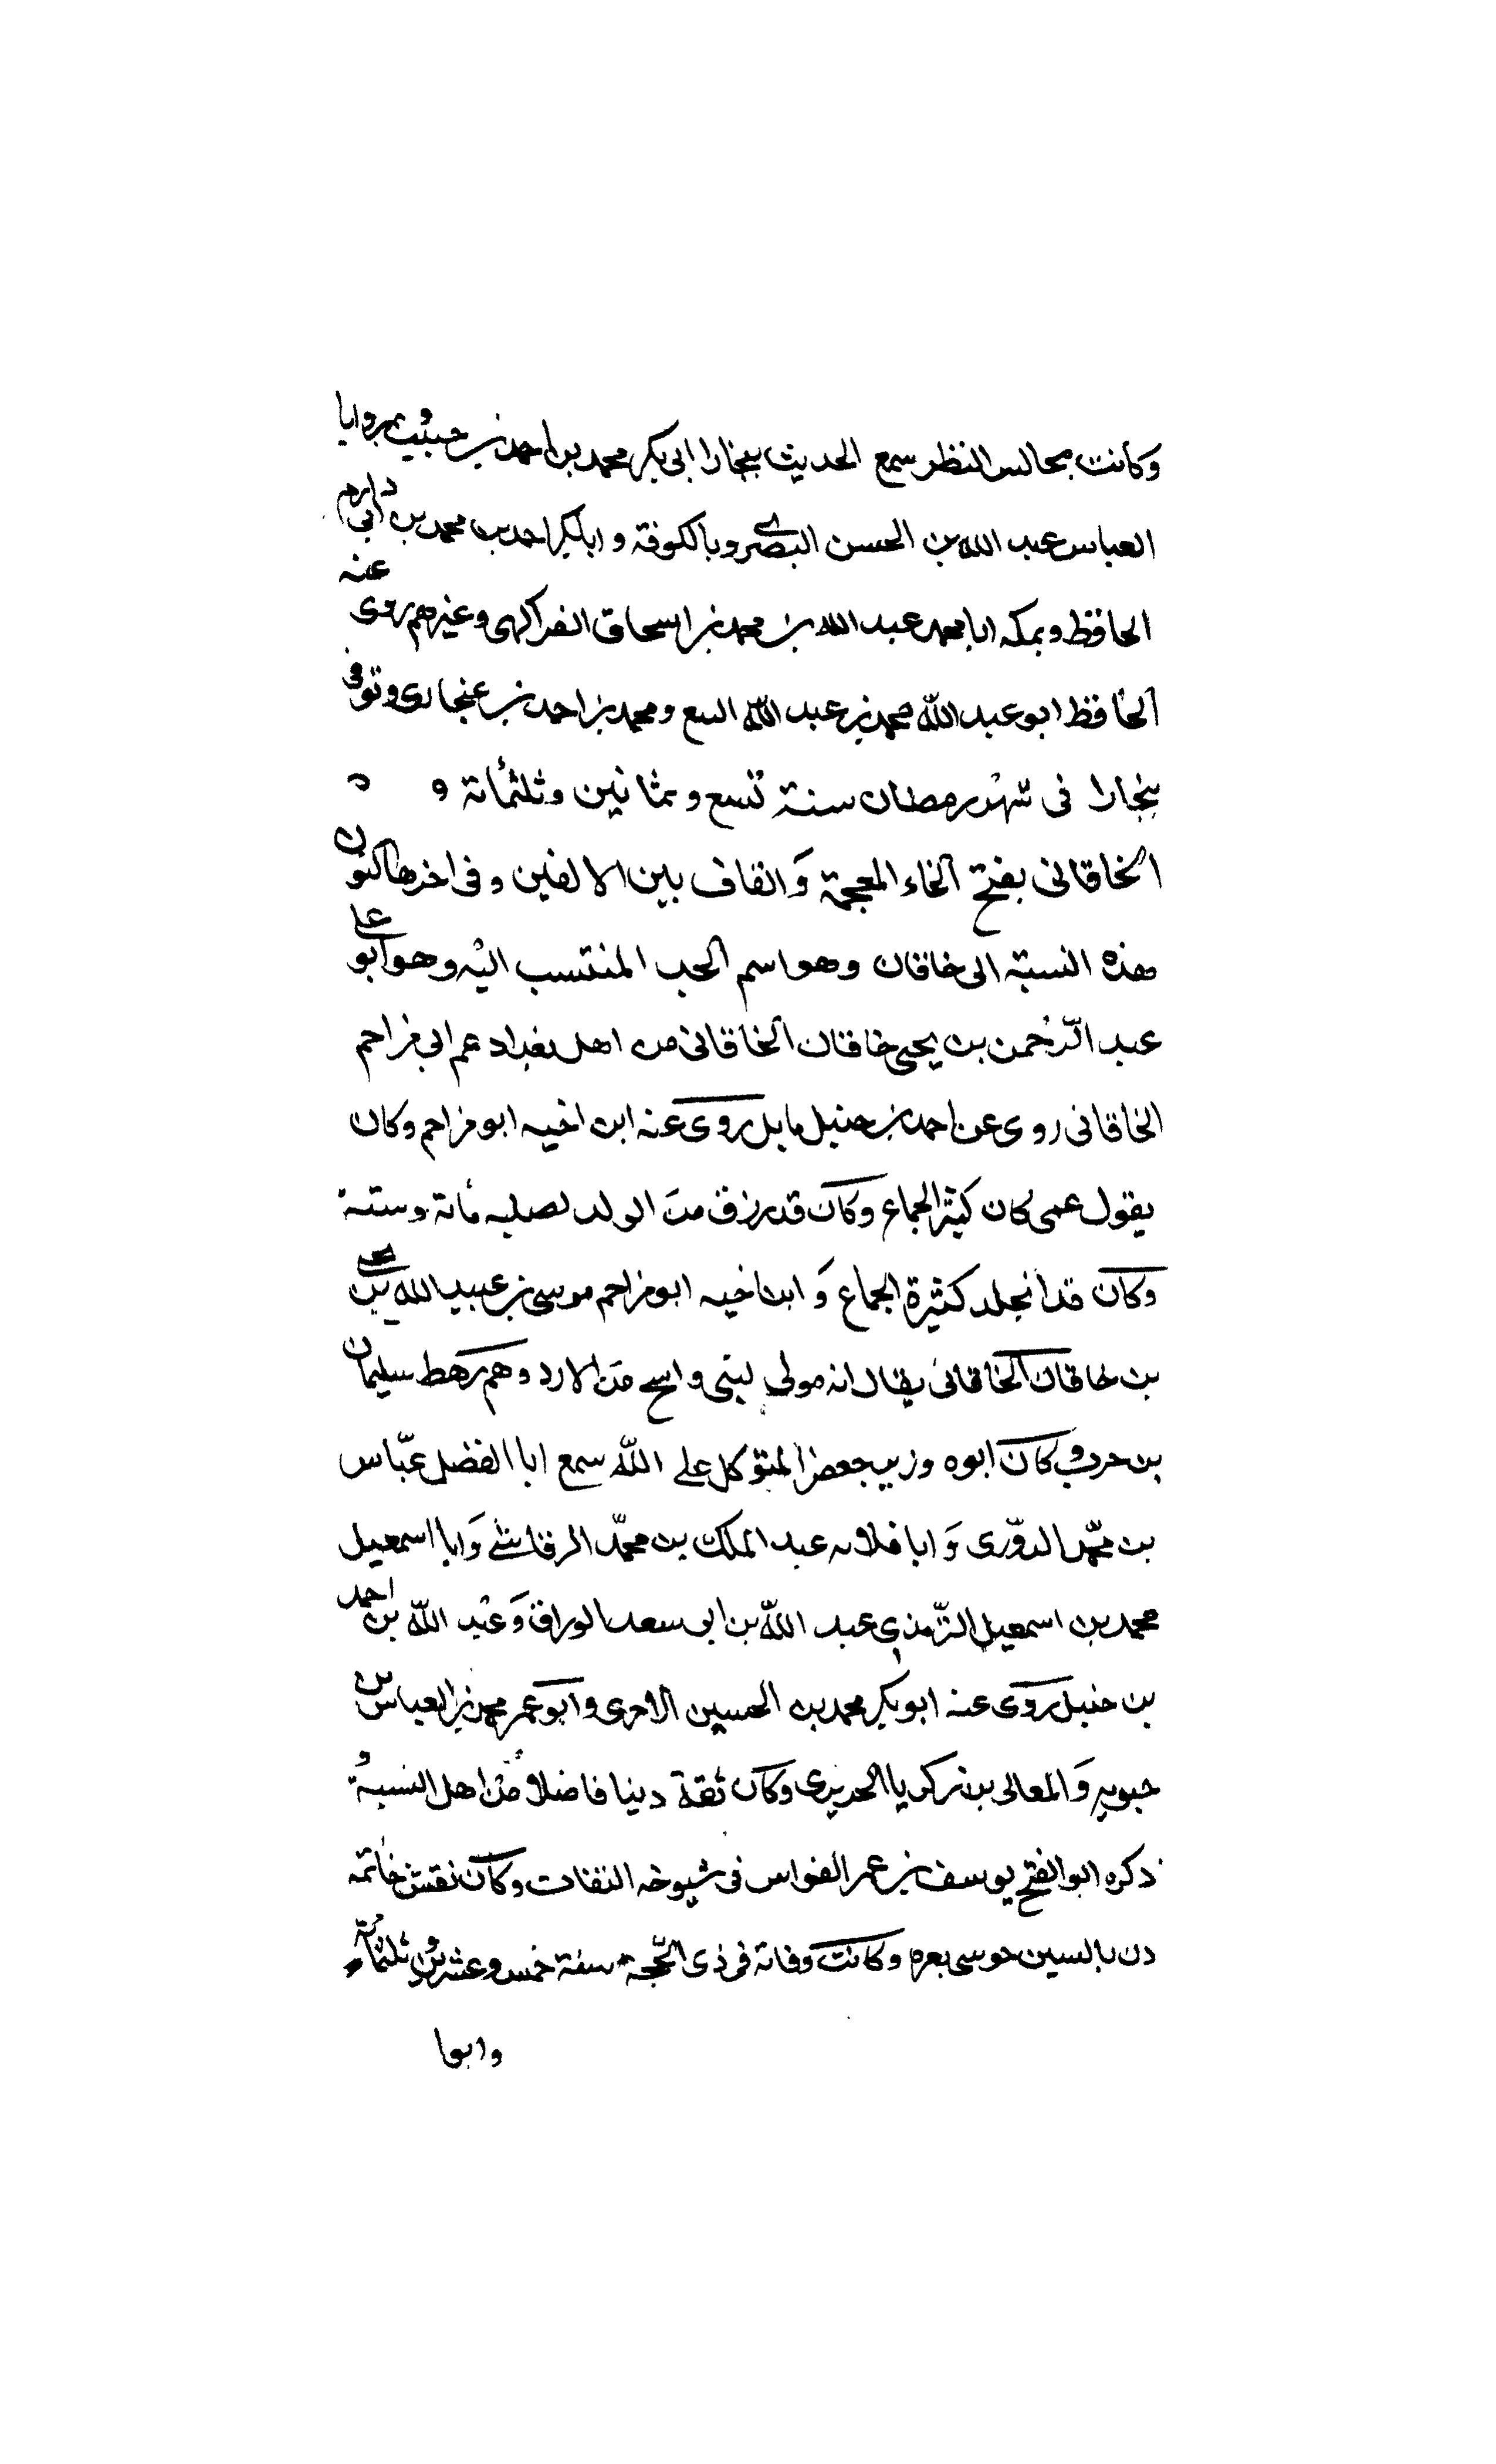 وكانت مجالس النظر سمع الحديث ببخارا ابى بكر محمد بن احمد بن حبيب وبمرو ابا
العباس عبد الله بن الحسن البصرى وبالكوفة و ابابكر احمد بن محمد بن ابى دارم
الحافظ وبمكه ابا محمد عبد الله بن محمد بن اسحاق الفراكهى وغيرهم روى عنه
الحافظ ابو عبد الله محمد بن عبد الله البيع ومحمد بن احمد بن عنجارى وتوفى
ببخارا فى شهر رمضان سنة تسع و ثمانين وثلثمائة
الخاقانى بفتح الخاء المعجمة وَالقاف بين الالفين وفى اخرها النون
هذه النسبة الى خاقان وهو اسم الجد المنتسب اليه وهو ابو على
عبد الرّحمن بن يحيى خاقان الخاقانى من اهل بغداد عم ابى مزاحم
الخاقانى روى عن احمد بن حنبل مايل روى عنه ابن اخيه ابو مزاحم وكان
يقول عمى كان كثير الجماع وكان قد رزق من الولد لصلبه مائة وستة
وكان قد انجلد كثيرة الجماع وَ ابن اخيه ابو مزاحم موسى بن عبيد الله بن يحيى
بن خاقان الخاقانى يقال انه مولى لبنى واسح من الازد وهم رهط سليمان
بن حرب وكان ابوه وزير جعفر المتوكل على اللّه سمع ابا الفضل عبّاس
بن محمّد الدوّرى وَ ابا قلابه عبد الملك بن محمّد الرقاشى وَابا اسمعيل
محمد بن اسمعيل الترّمذى عبد اللّه بن ابى سعد الوراق وَعبد اللّه بن احمد
بن حنبل روى عنه ابو بكر محمد بن الحسين الاجرى وابو عمر محمد بن العباس بن
حيويه وَالمعالى بن زكريا الحديرى وكان ثقة دينا فاضلا من اهل النسبة و
ذكره ابو الفتح يوسف بن عمر القواس فى شيوخه الثقات وكان نقش خاتمه
دن بالسين موسى بعره وكانت وفاته فى ذى الحجّة سنة خمس وعشرين وثلثمائة
وابوا